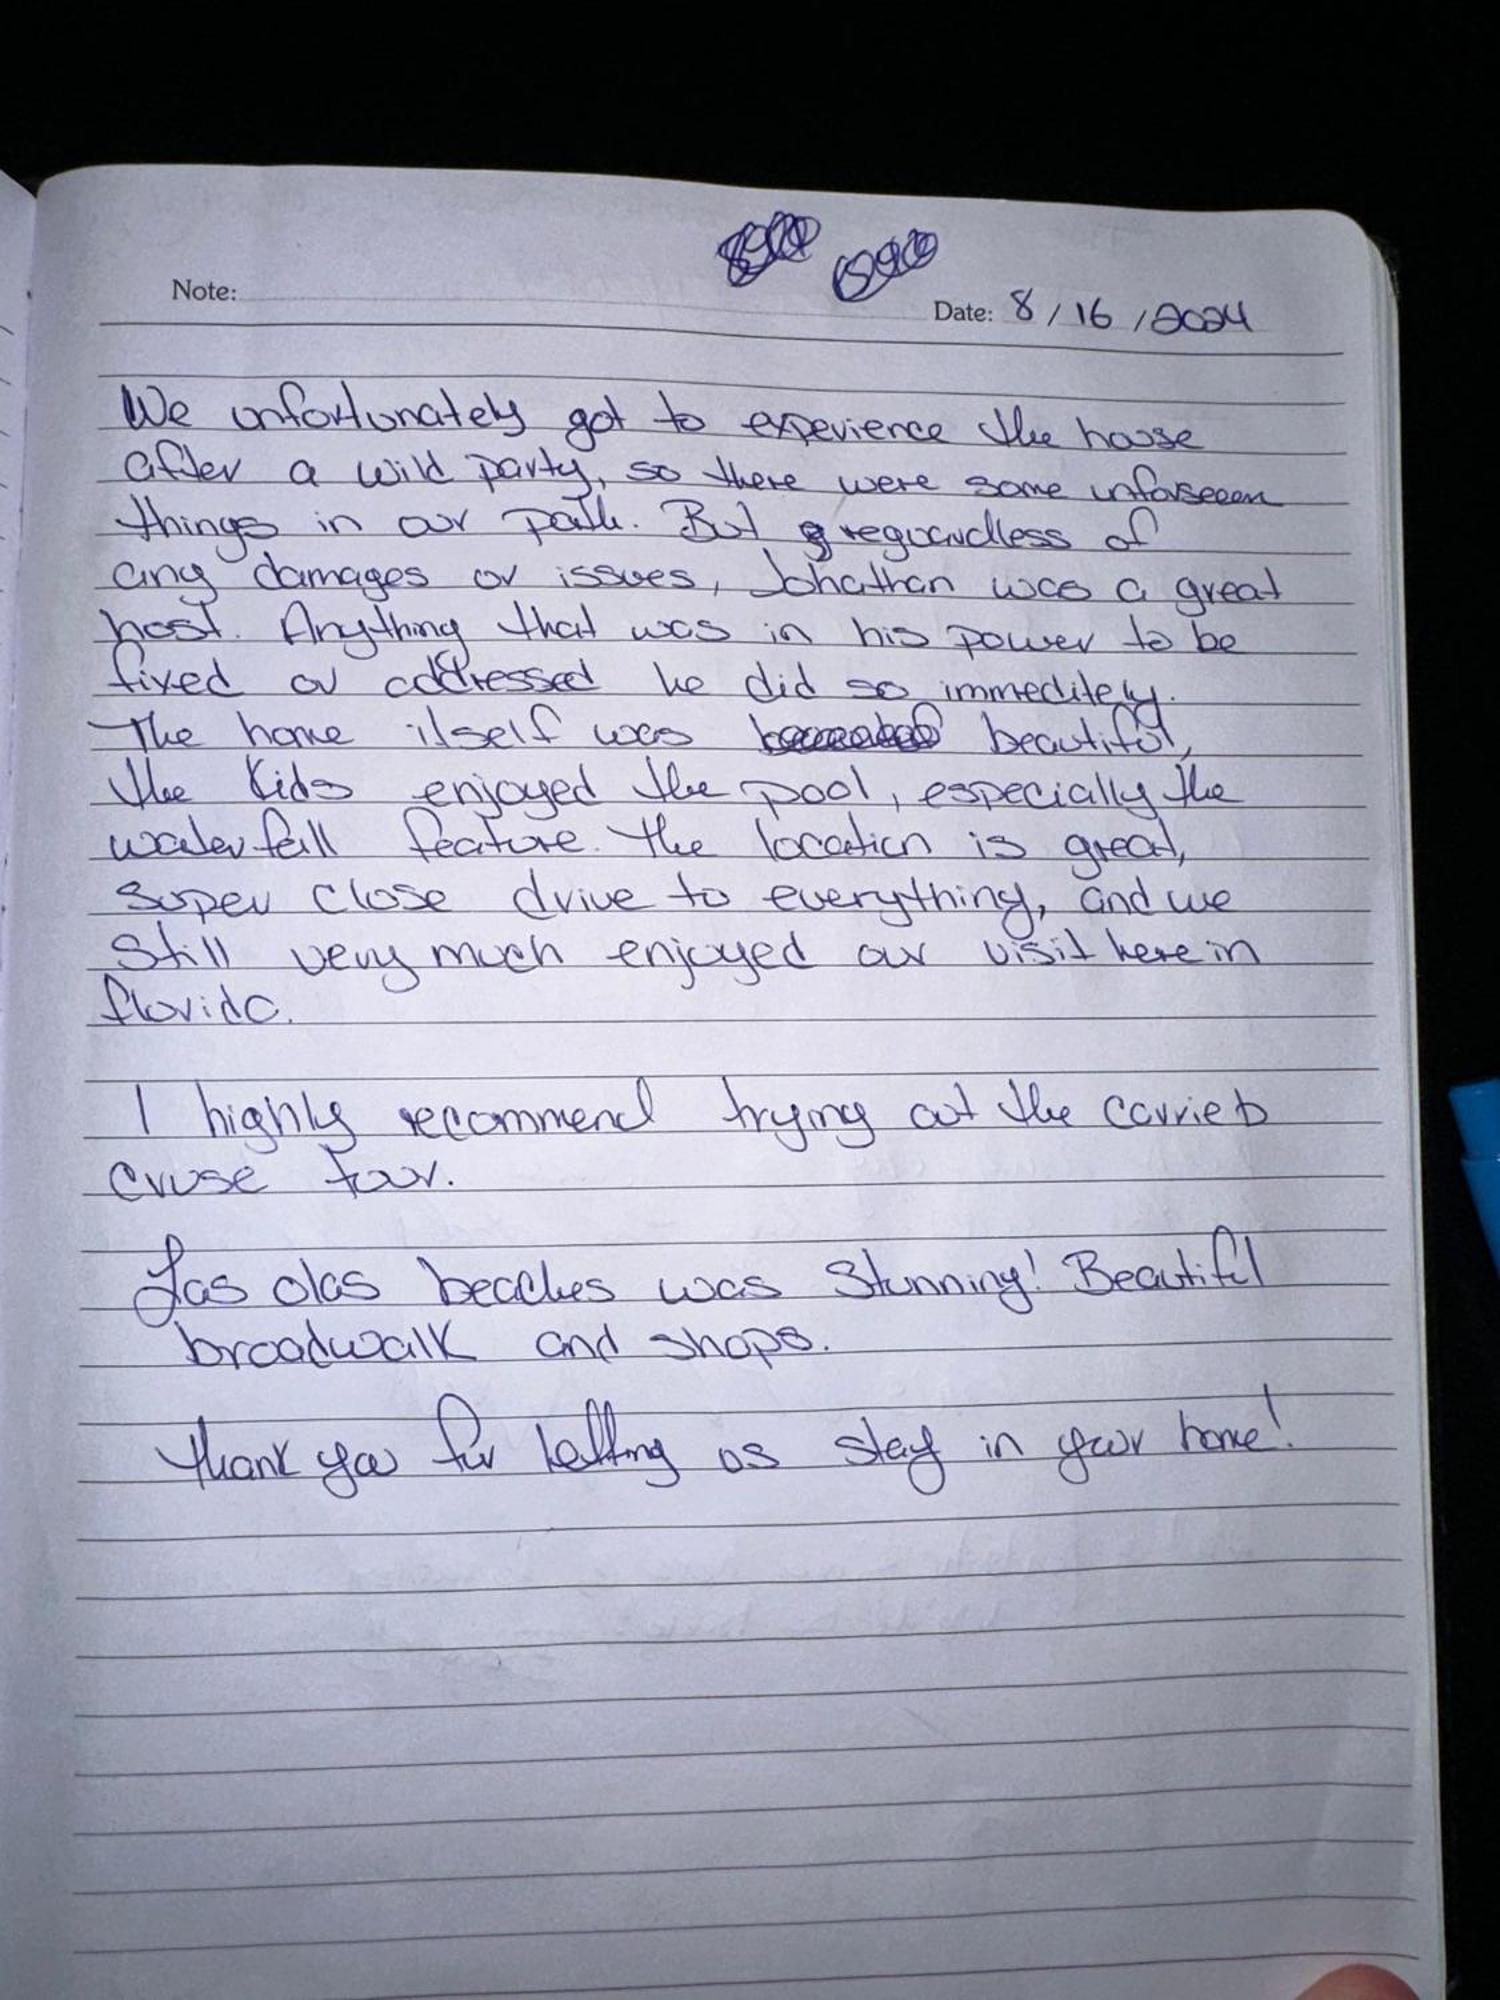 Note:
Date: 8/16/2024
We unfortunately got to experience the house
after a wild party, so there were some unforseeen
things in our path. But reguardless of
any damages or issues, Johathan was a great
host. Anything that was in his power to be
fixed or addressed he did so immeditely.
The home itself was beautiful,
the kids enjoyed the pool, especially the
waterfall feature. The location is great,
super close drive to everything, and we
still very much enjoyed our visit here in
florida.
I highly recommend trying out the carrieb
cruse tour.
Las olas beaches was stunning! Beautiful
broadwalk and shops.
Thank you for letting us stay in your home!